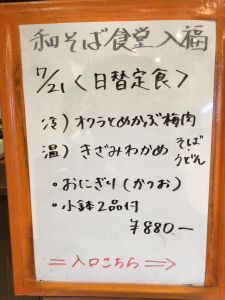 和そば食堂 入福
7/21 <日替定食>
冷) オクラとめかぶ梅肉
温) きざみわかめ そば・うどん
・おにぎり(かつお)
・小鉢2品付
¥880.-
入口こちら